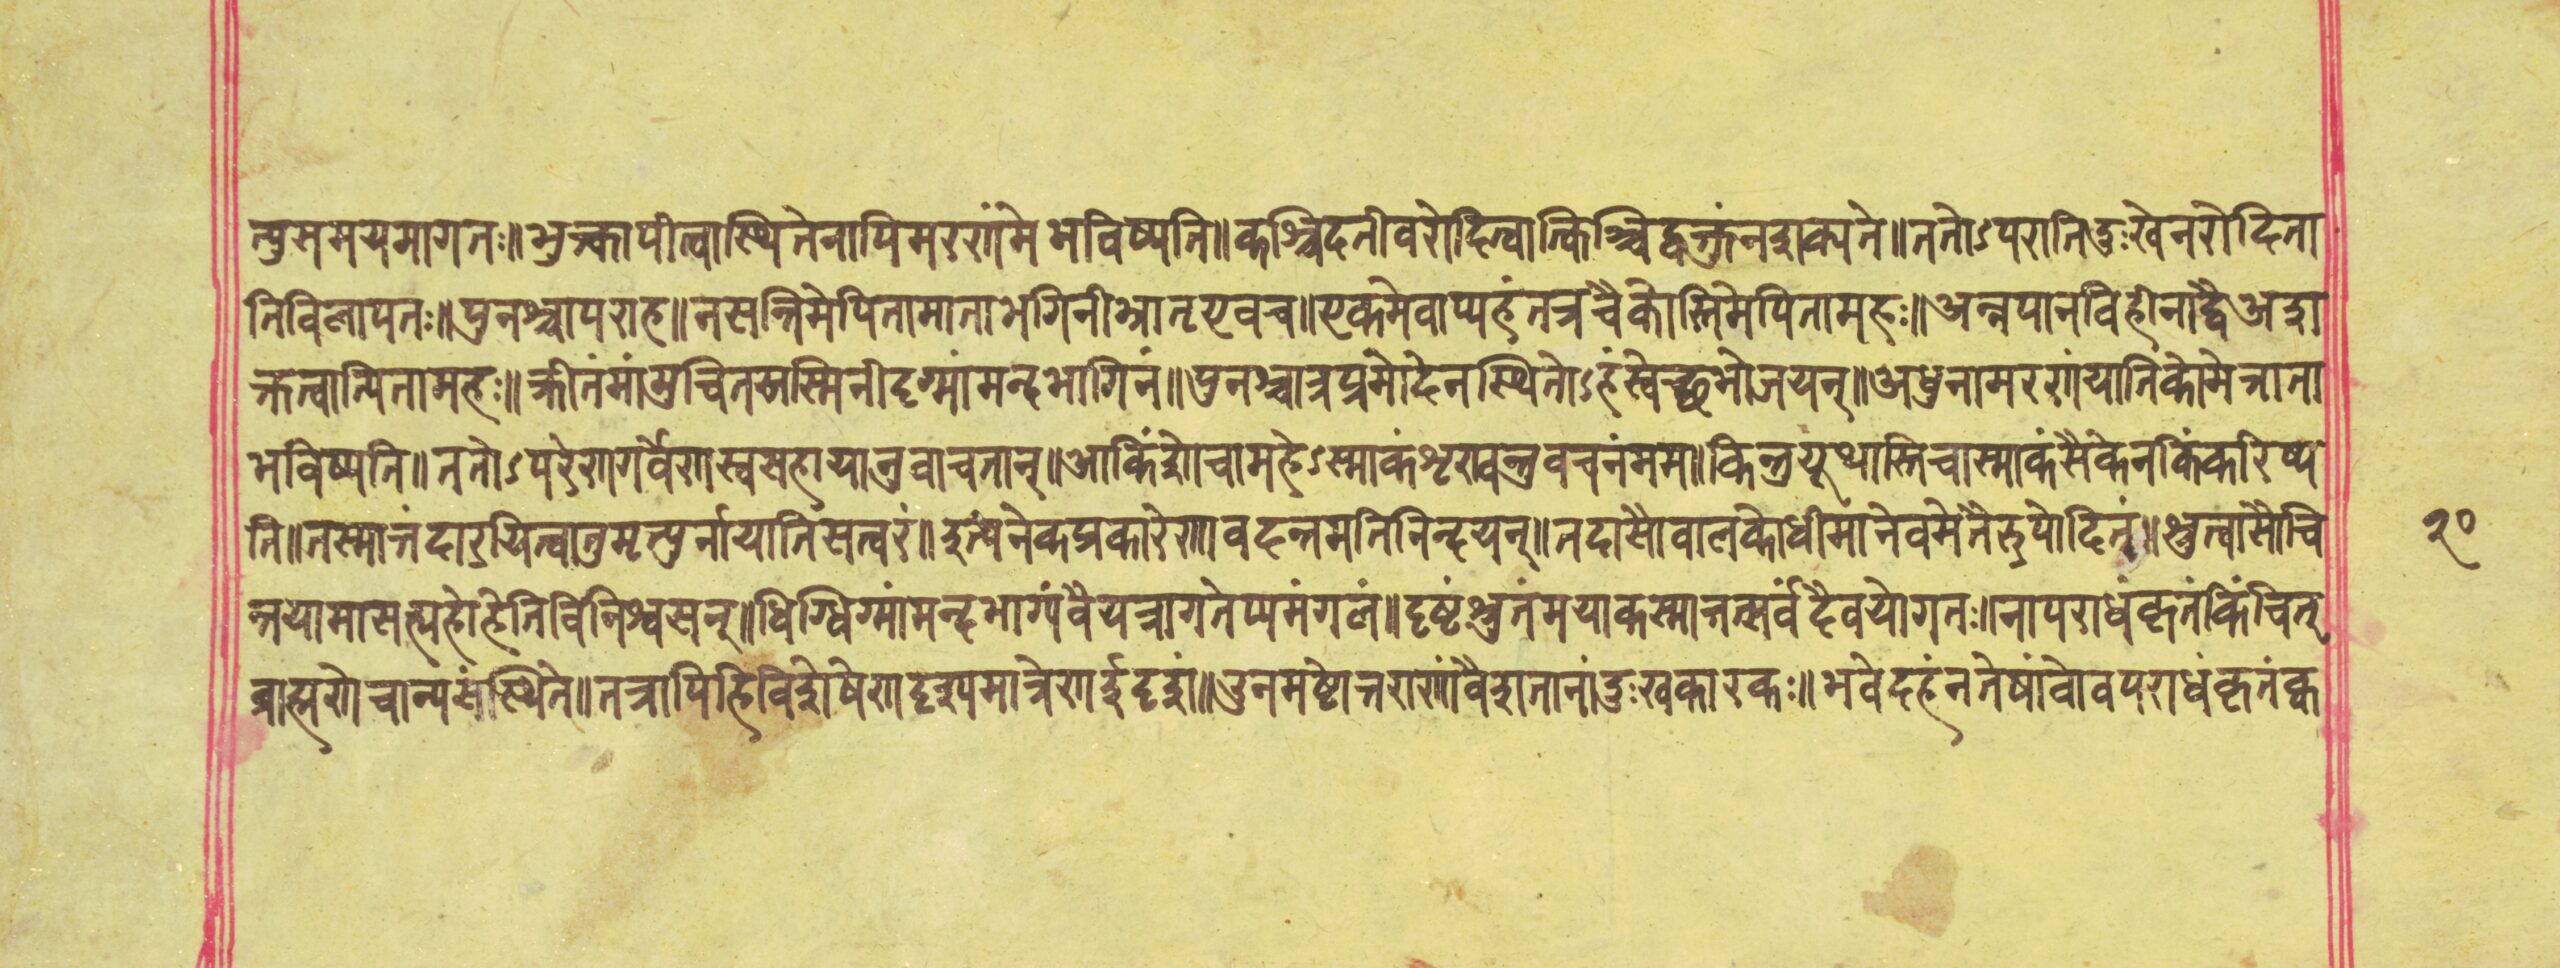 त्युसमयमागतः॥भुत्क्वापीत्वास्थितेनापिमरणंमेभविष्यति॥कश्चिदतीवरोदित्वात्किश्चिद्वक्तुंनशक्यते॥ततोऽपरातिदुःखेनरोदिता
तिविलापतः॥पुनश्चापराह॥नसन्तिमेपितामाताभगिनीभ्रातृएवच॥एकमेवाप्यहंतत्रचैकोस्तिमेपितामहः॥अन्नपानविहीनाद्वैअश
क्तत्वात्पितामहः॥क्रीतंमांमुचितअस्मिनीदृग्मांमन्दभागिनं॥पुनश्चात्रप्रमोदेनस्थितोऽहंस्वेच्छभोजयन्॥अधुनामरणंयातिंकोमेत्राता
भविष्यति॥ततोऽपरेणगर्वेणस्वसहायानुवाचतान्॥आकिंशोचामहेऽस्माकंशृण्वन्तुवचनंमम॥किन्तुयूथास्तिचास्माकंसैकेनकिंकरिष्य
ति॥तस्मात्तंदारयित्वातुमृत्पुर्नायातिसत्वरं॥इत्यनेकप्रकारेणावदन्तमतिनिन्दयन्॥तदासौवालकोधीमानेवमेतैरुपोदितं॥श्रुत्वासौचि
न्तयामासत्यहोहेतिविनिश्वसन्॥धिग्धिग्मांमन्दभाग्यंवैयत्रागतेप्यमंगलं॥दृष्टंश्रुतंमयाकस्मात्तत्सर्वंदैवयोगतः॥नापराधंकृतंकिंचित्
ब्राह्मणेचान्यसंस्थिते॥तत्रापिहिविशेषेणदृश्यमात्रेणईदृशं॥ऊनमष्टोत्तराणांवैशतानांदुःखकारकः॥भवेदहंनतेषांवोवपराधंकृतंक्व
२०